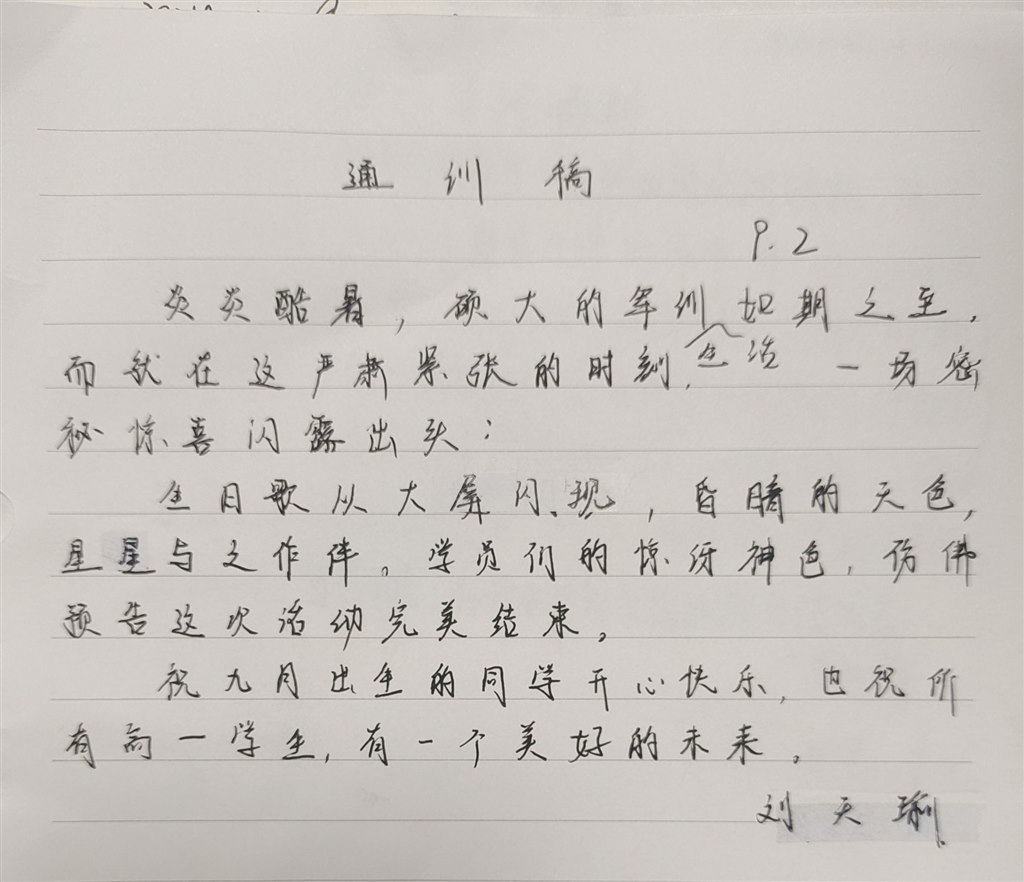 通训稿
9.2
炎炎酷暑，硕大的军训如期之至，
而就在这严肃紧张的时刻，生活一场密
秘惊喜闪露出头：
生日歌从大屏闪现，昏暗的天色，
星星与之作伴。学员们的惊讶神色，仿佛
预告这次活动完美结束。
祝九月出生的同学开心快乐，也祝所
有高一学生，有一个美好的未来。
刘天瑜